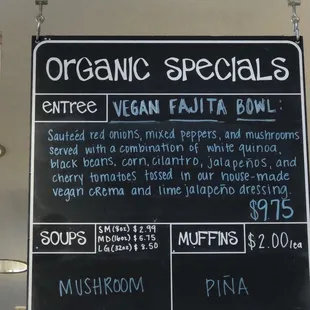 ORGANIC SPECIALS
ENTREE VEGAN FAJITA BOWL:
Sauteéd red onions, mixed peppers, and mushrooms
served with a combination of white quinoa,
black beans, corn, cilantro, jalapeños, and
cherry tomatoes tossed in our house-made
vegan crema and lime jalapeño dressing.
$9.75
SOUPS SM (8oz) $2.99
MD (16oz) $5.75
LG (32oz) $8.50
MUFFINS $2.00/ea
MUSHROOM
PIÑA